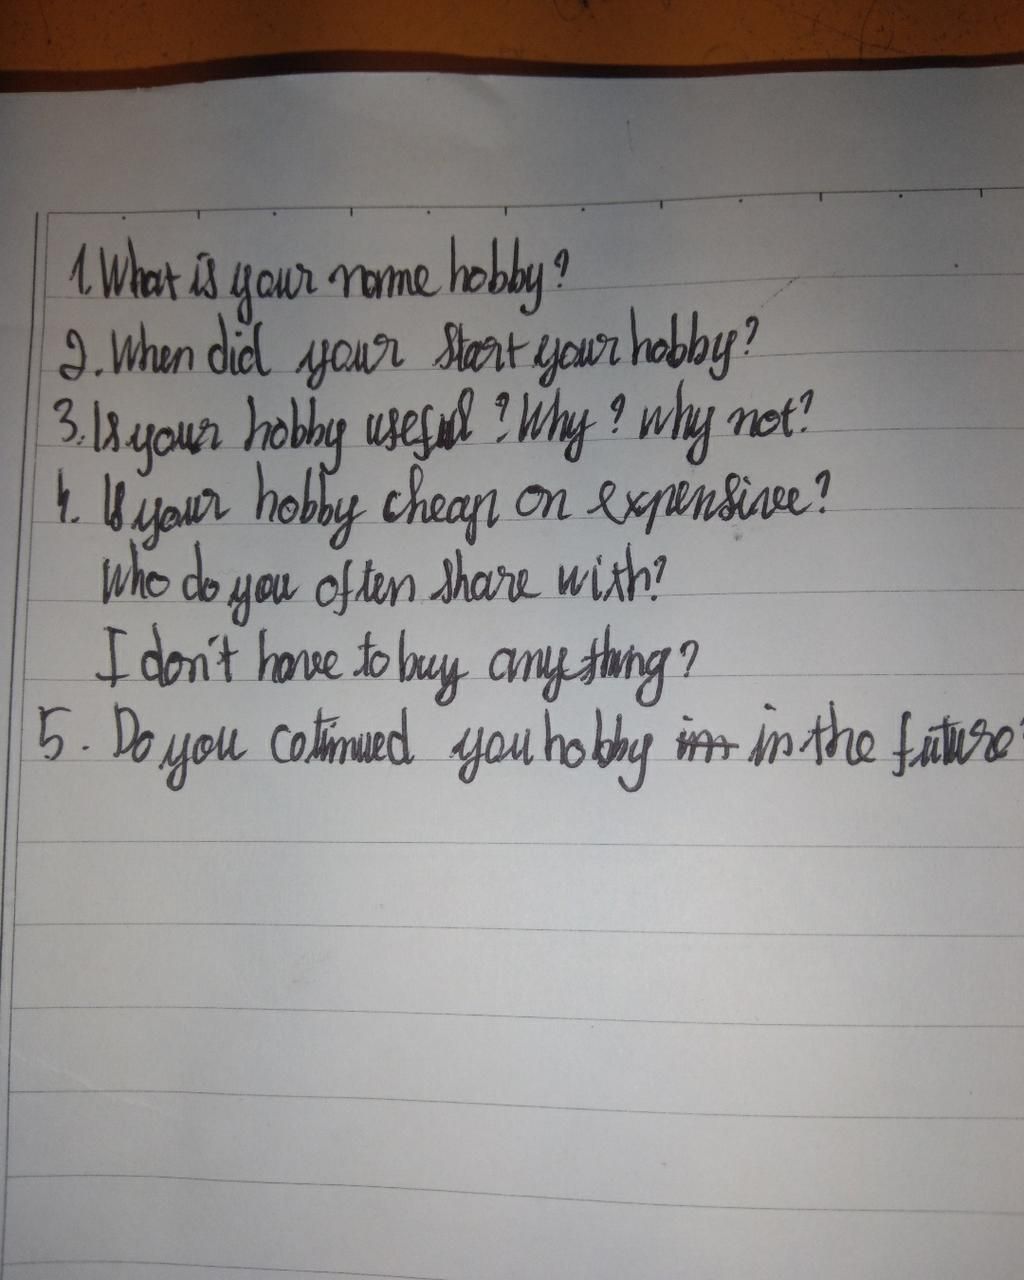 1. What is your name hobby?
2. When did your start your hobby?
3. Is your hobby useful? Why? why not?
4. Is your hobby cheap on expensive?
Who do you often share with?
I don't have to buy anything?
5. Do you cotinued you hobby in in the future?